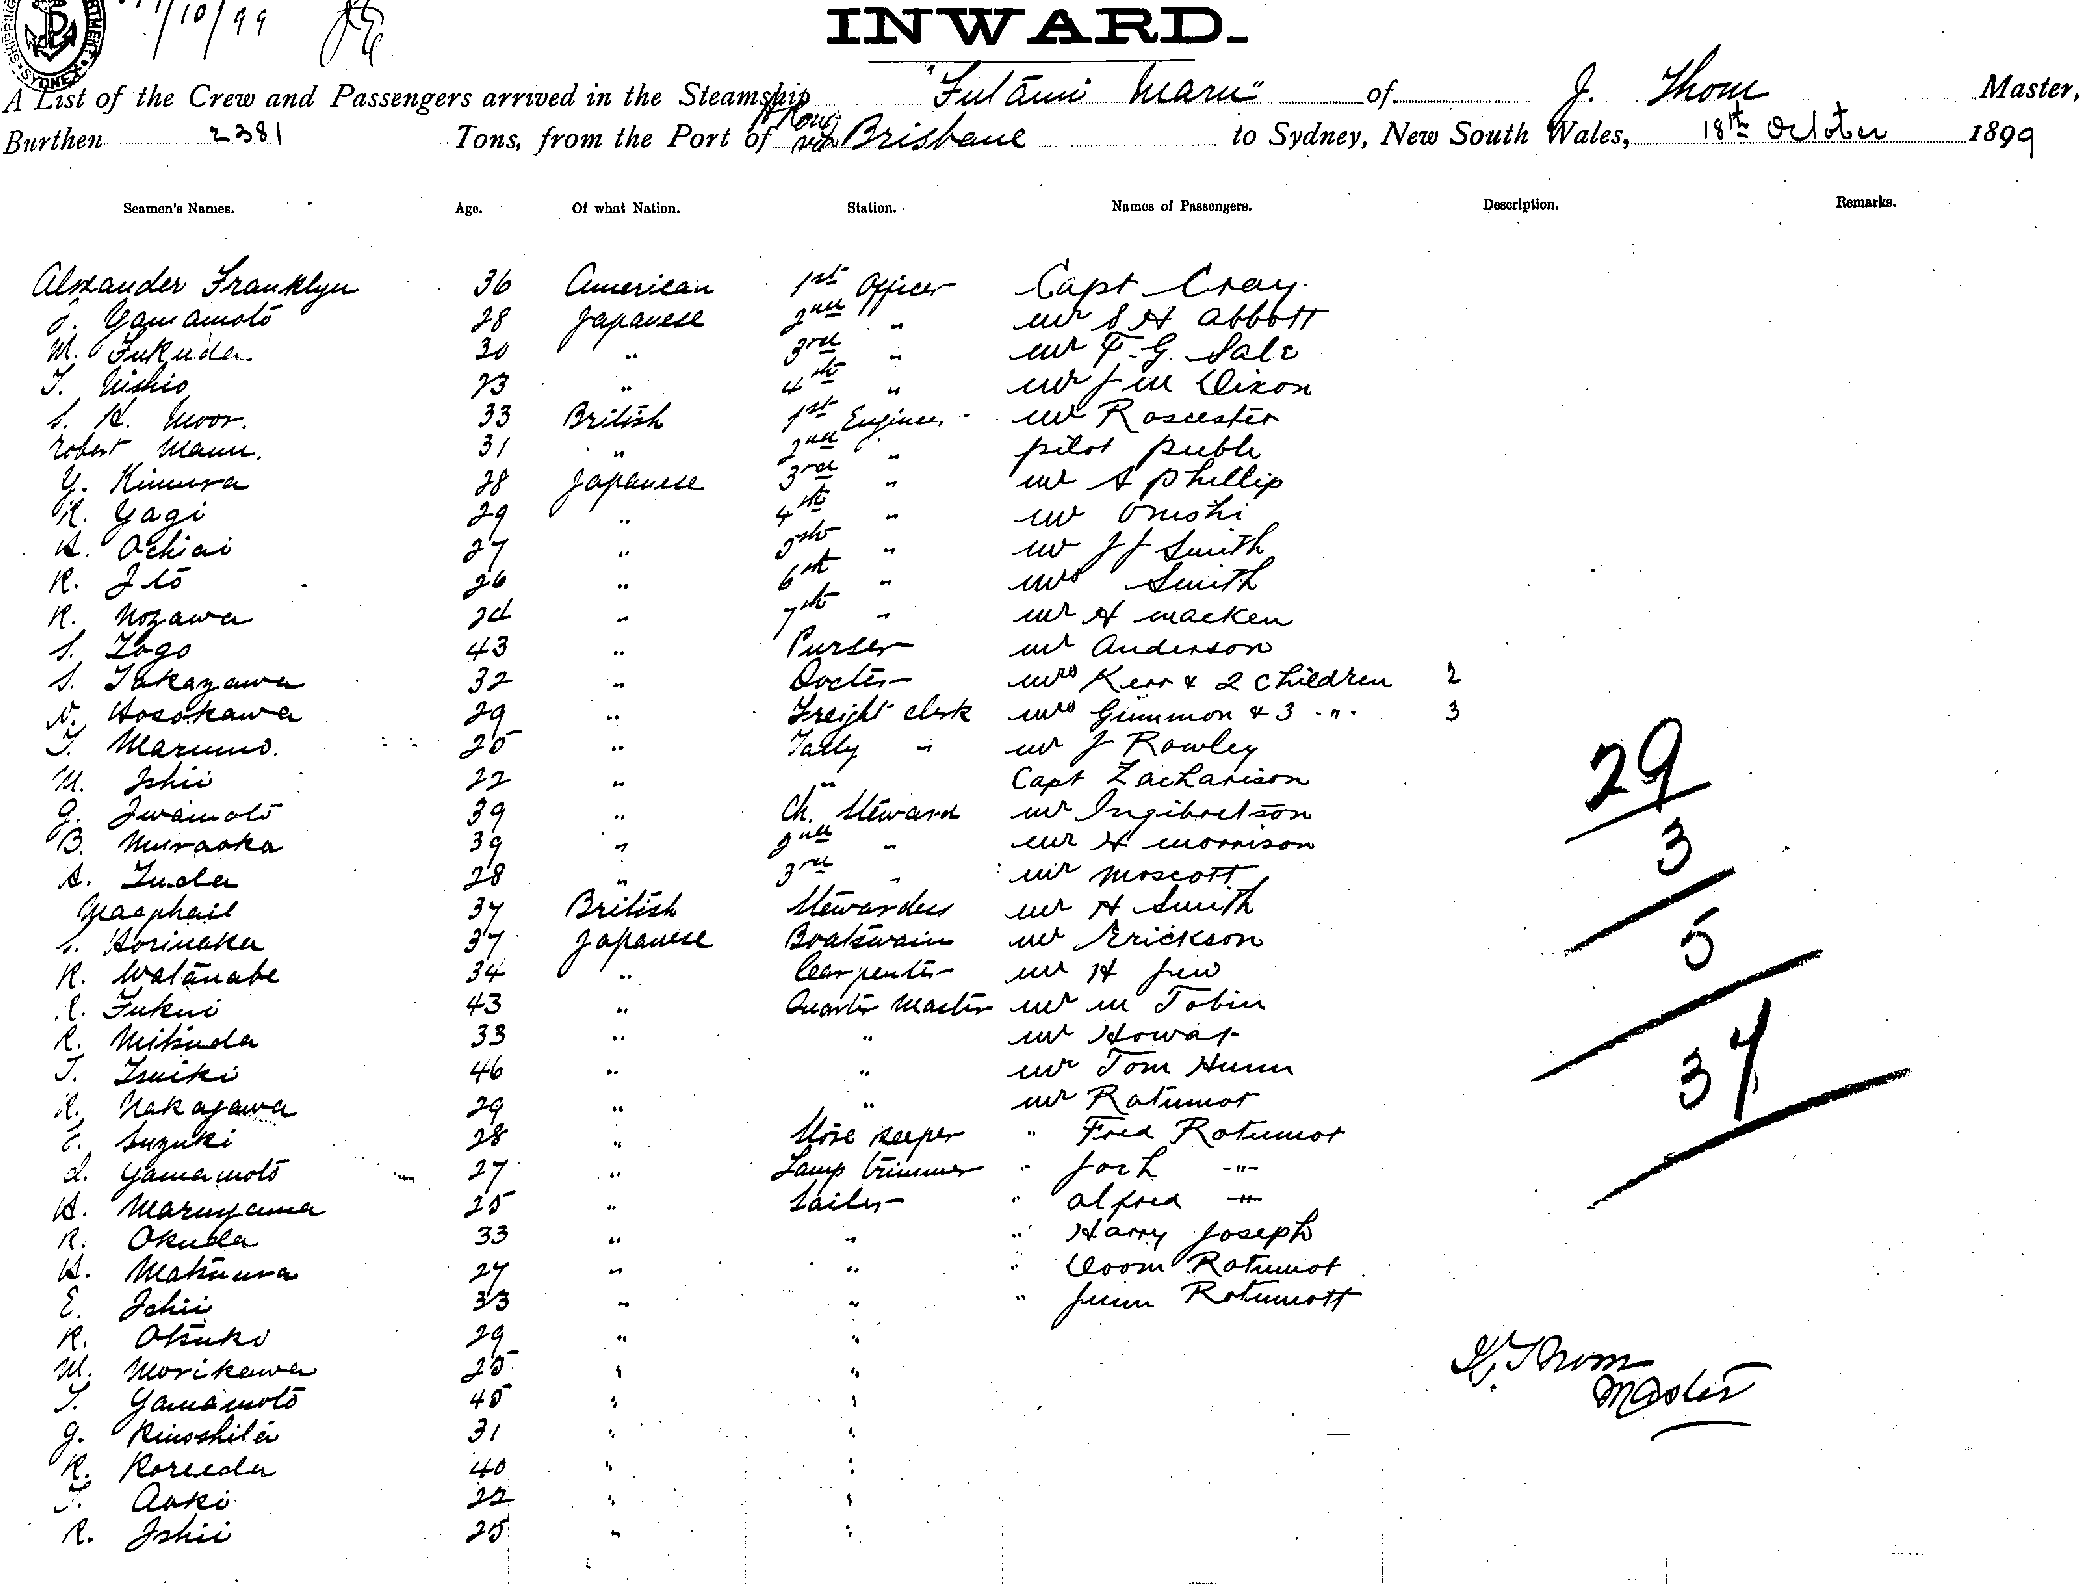 /10/99
INWARD.
A List of the Crew and Passengers arrived in the Steamship "Futami Maru" of J. Thom Master,
Burthen 2381 Tons, from the Port of via Brisbane to Sydney, New South Wales, 18th October 1899
Seamen's Names. Age. Of what Nation. Station. Names of Passengers. Description. Remarks.
Alexander Franklyn 36 American 1st Officer Capt Cray.
Yamamoto 28 Japanese 2nd " Mr S H Abbott
M. Fukuda 30 " 3rd " Mr F. G. Sale
T. Nishio 23 " 4th " Mr J M Dixon
S. H. Moor. 33 British 1st Engineer Mr Roscester
Robert Mann. 31 " 2nd " pilot
Y. Kimura 28 Japanese 3rd " Mr A Phillip
K. Yagi 29 " 4th " Mr Onishi
H. Ochiai 27 " 5th " Mr J J Smith
K. Ito 26 " 6th " Mrs Smith
K. Nozawa 24 " 7th " Mr H Macken
S. Togo 43 " Purser Mr Anderson
S. Takazawa 32 " Doctor Mrs Kerr & 2 children 2
N. Hosokawa 29 " Freight clerk Mrs Gimmon & 3 " 3
T. Marumo. 25 " Tally " Mr J Rowley
M. Ishii 22 " " Capt Zacharison
G. Iwamoto 39 " Ch. Steward Mr Ingibretson
B. Muraoka 39 " 2nd " Mr H Morrison
A. Tuda 28 " 3rd " Mr Moscott
Macphail 37 British Stewardess Mr H Smith
S. Horinaka 37 Japanese Boatswain Mr Erickson
K. Watanabe 34 " Carpenter Mr H Jew
Fukui 43 " Quarter Master Mr M Tobin
K. Mikuda 33 " " Mr Howat
T. Tsuiki 46 " " Mr Tom Hunn
K. Nakagawa 29 " " Mr Rotumot
Suzuki 28 " Store keeper " Fred Rotumot
Yamamoto 27 " Lamp trimmer " "
H. Maruyama 25 " Sailor " Alfred "
K. Okuda 33 " " " Harry Joseph
H. Matsuura 27 " " " Doom Rotumot
E. Ichii 33 " " " Rotumott
K. Otsuko 29 " "
M. Morikawa 25 " "
T. Yamamoto 45 " "
G. Kinoshita 31 " "
K. Koreeda 40 " "
T. Aoki 22 " "
K. Ishii 25 " "
29
3
5
37
J. Thom
Master